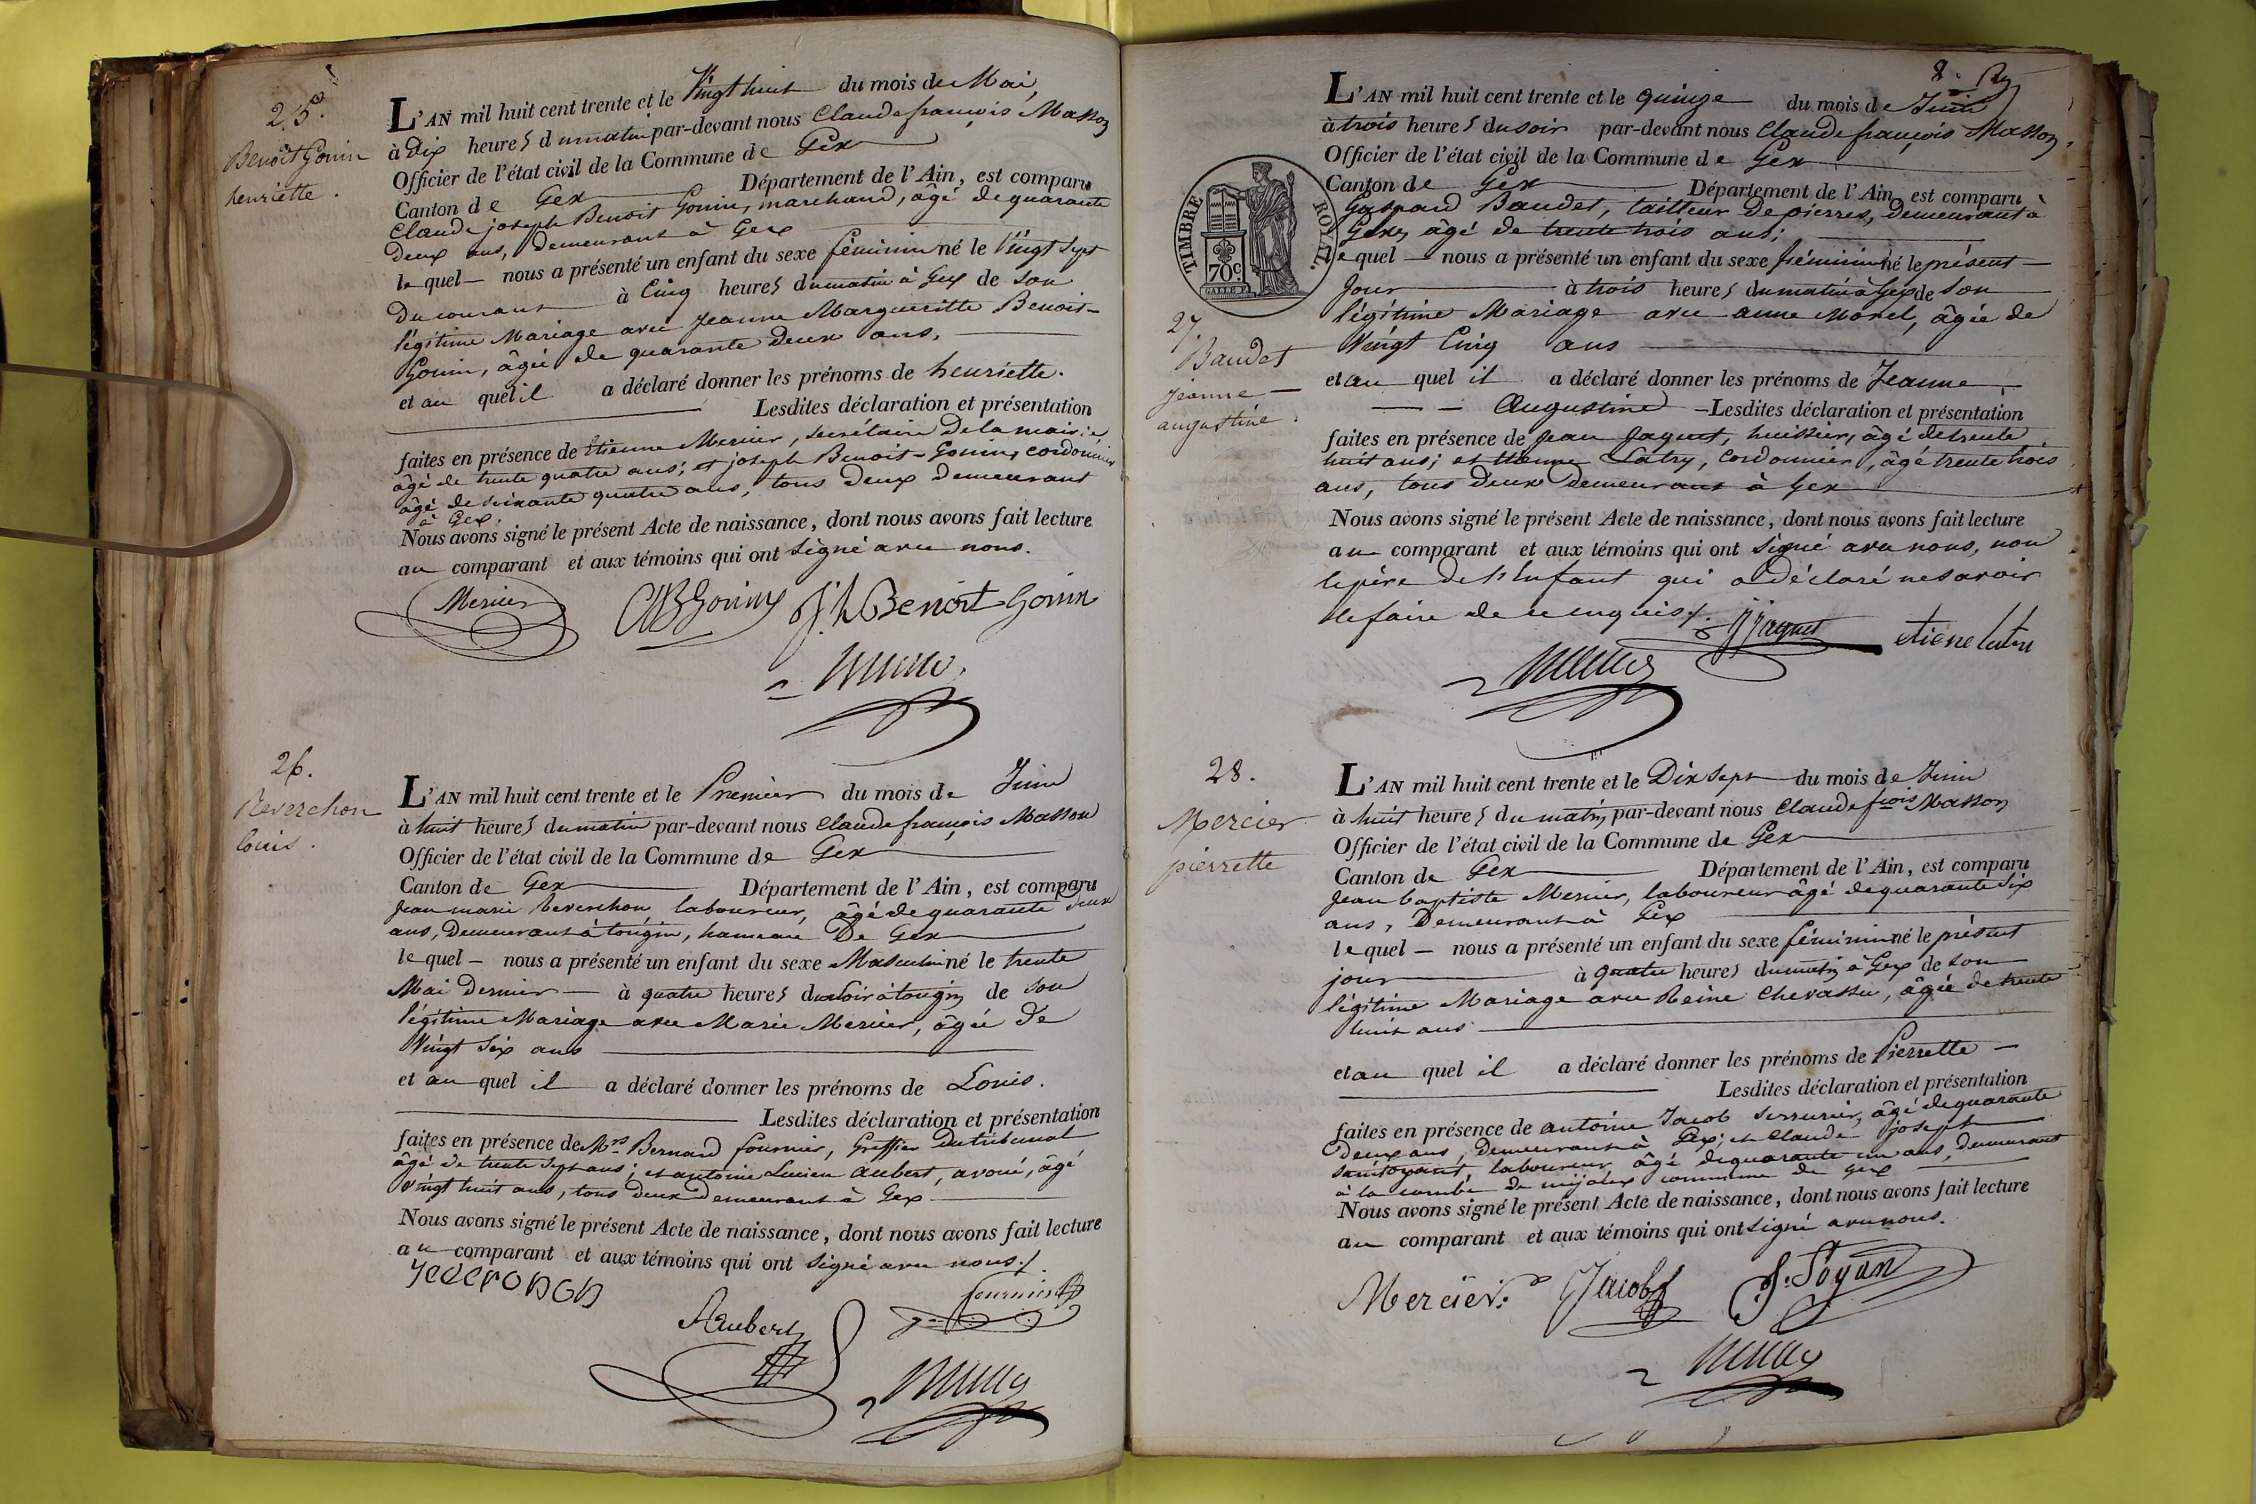 25.
Benoit Gonin
henriette.
L'AN mil huit cent trente et le Vingt huit du mois de Mai,
à Dix heures du matin par-devant nous Claude françois Masson
Officier de l'état civil de la Commune de Gex
Canton de Gex Département de l'Ain, est comparu
Claude joseph Benoit Gonin, marchand, âgé de quarante
deux ans, demeurant à Gex
lequel nous a présenté un enfant du sexe féminin né le Vingt sept
du courant à Cinq heures du matin à Gex de son
légitime Mariage avec Jeanne Margueritte Benoit-
Gonin, âgée de quarante deux ans.
et au quel il a déclaré donner les prénoms de henriette.
Lesdites déclaration et présentation
faites en présence de Etienne Mercier, secrétaire de la mairie
âgé de trente quatre ans; et joseph Benoit-Gonin, cordonnier
âgé de soixante quatre ans, tous deux demeurant
à Gex.
Nous avons signé le présent Acte de naissance, dont nous avons fait lecture
au comparant et aux témoins qui ont signé avec nous.
Mercier CJBGonin J.h Benoit Gonin
26.
Reverchon
louis.
L'AN mil huit cent trente et le Premier du mois de Juin
à huit heures du matin par-devant nous Claude françois Masson
Officier de l'état civil de la Commune de Gex
Canton de Gex Département de l'Ain, est comparu
Jean marie Reverchon laboureur, âgé de quarante deux
ans, demeurant à tougin, hameau De Gex
lequel nous a présenté un enfant du sexe Masculin né le trente
Mai Dernier à quatre heures du soir à tougin de son
légitime Mariage avec Marie Mercier, âgée De
Vingt Six ans
et au quel il a déclaré donner les prénoms de Louis.
Lesdites déclaration et présentation
faites en présence de Mrs Bernard fournier, Greffier du tribunal
âgé de trente Sept ans; et antoine Lucien Aubert, avoué, âgé
Vingt huit ans, tous deux demeurant à Gex
Nous avons signé le présent Acte de naissance, dont nous avons fait lecture
au comparant et aux témoins qui ont Signé avec nous.
Aubert fournier
8.
L'AN mil huit cent trente et le quinze du mois de Juin
à trois heures du soir par-devant nous Claude françois Masson,
Officier de l'état civil de la Commune de Gex
Canton de Gex Département de l'Ain, est comparu
Gaspard Baudet, tailleur de pierres, demeurant à
Gex, âgé de trente trois ans;
lequel nous a présenté un enfant du sexe féminin né le présent
Jour à trois heures du matin à Gex de son
légitime Mariage avec anne Morel, âgée de
Vingt Cinq ans
et au quel il a déclaré donner les prénoms de Jeanne
Augustine Lesdites déclaration et présentation
faites en présence de Jean Jaquet, huissier, âgé de trente
huit ans; et Etienne Latry, Cordonnier, âgé trente trois
ans, tous deux demeurant à Gex
Nous avons signé le présent Acte de naissance, dont nous avons fait lecture
au comparant et aux témoins qui ont signé avec nous, non
le père de l'Enfant qui a déclaré ne savoir
le faire de ce enquis.
JJaquet
TIMBRE ROYAL.
70c.
27.
Baudet
jeanne
augustine.
28.
Mercier
pierrette
L'AN mil huit cent trente et le Dix Sept du mois de Juin
à huit heures du matin par-devant nous Claude fcois Masson
Officier de l'état civil de la Commune de Gex
Canton de Gex Département de l'Ain, est comparu
Jean baptiste Mercier, laboureur âgé de quarante Six
ans, Demeurant à Gex
lequel nous a présenté un enfant du sexe féminin né le présent
jour à quatre heures du matin à Gex de son
légitime Mariage avec Reine Chevassu, âgée de trente
huit ans
et au quel il a déclaré donner les prénoms de Pierrette
Lesdites déclaration et présentation
faites en présence de antoine Jacob Serrurier, âgé de quarante
Deux ans, Demeurant à Gex; et Claude joseph
laboureur, âgé de quarante un ans, demeurant
à la combe de mijoux commune de Gex
Nous avons signé le présent Acte de naissance, dont nous avons fait lecture
au comparant et aux témoins qui ont signé avec nous.
Mercier. Jacob